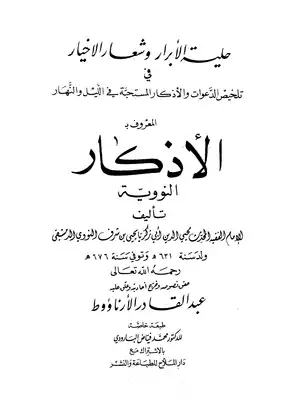 حلية الأبرار وشعار الأخيار
في
تلخيص الدعوات والأذكار المستحبة في الليل والنهار
المعروف بـ
الأذكار
النووية
تأليف
الإمام الفقيه المحدث محيي الدين أبي زكريا يحيى بن شرف النووي الدمشقي
ولد سنة ٦٣١ هـ وتوفي سنة ٦٧٦ هـ
رحمه الله تعالى
حقق نصوصه وخرج أحاديثه وعلق عليه
عبد القادر الأرناؤوط
طبعة خاصة
للدكتور محمد فياض البارودي
بالاشتراك مع
دار الملاح للطباعة والنشر